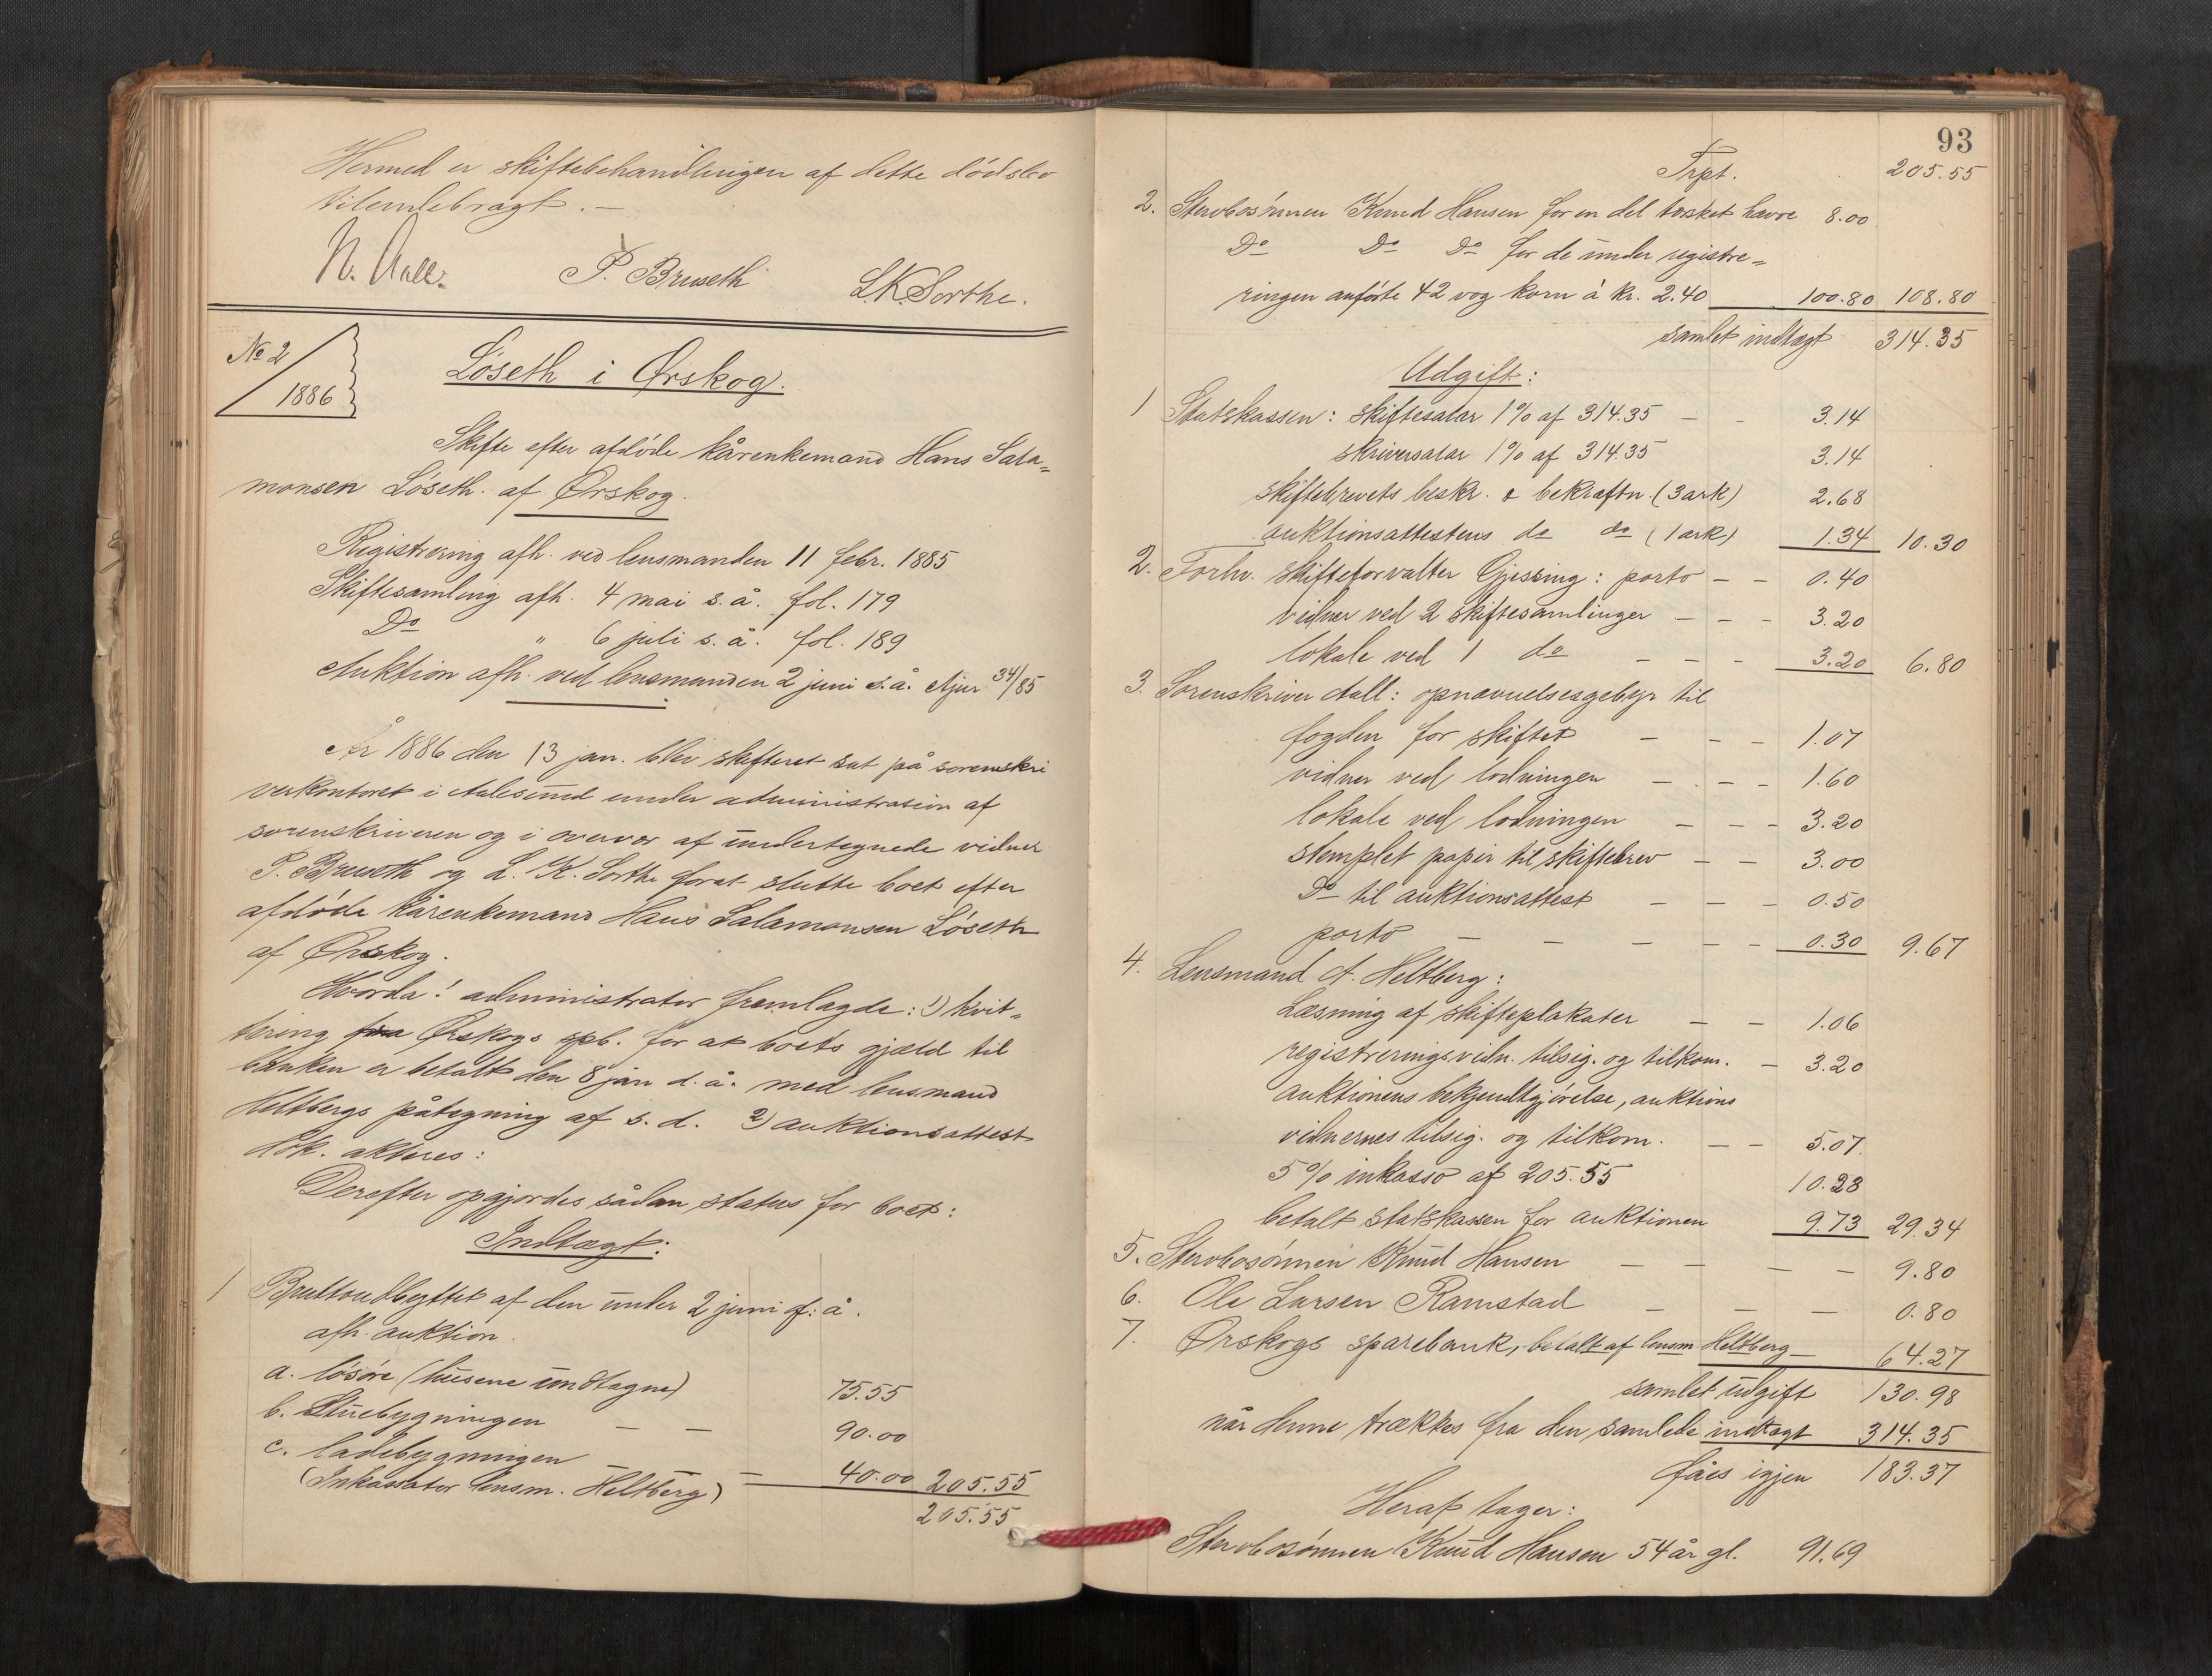 Hermed er skiftebehandlingen af dette dödsbo
tilendebragt. —
N. Aall. P. Bruseth L.K. Sorthe.
No 2 / 1886
Löseth i Ørskog.
Skifte efter afdöde kårenkemand Hans Sala=
monsen Löseth af Ørskog.
Registrering afh. ved lensmanden 11 febr. 1885
Skiftesamling afh. 4 mai s. å. fol. 179
Do " 6 juli s. å. fol. 189
Auktion afh. ved lensmanden 2 juni s. å. Ajur 34/85
År 1886 den 13 jan. blev skifteret sat på sorenskri
verkontoret i Aalesund under administrasion af
sorenskriveren og i overvær af undertegnede vidner
P. Bruseth og L. K. Sorthe forat slutte boet efter
afdöde kårenkemand Hans Salamonsen Löseth
af Ørskog.
Hvorda! administrator fremlagde: 1) kvit=
tering fra Ørskogs spb. for at boets gjæld til
banken er betalt den 8 jan d. å. med lensmand
Heltbergs påtegning af s. d. 2) auktionsattest
Dok. akteres:
Derefter opgjordes sådan status for boet:
Indtægt:
1 Bruttoudbyttet af den under 2 juni f: å.
afh. auktion.
a. lösöre (husene undtagne) 75.55
b. Stuebygningen — — 90.00
c. ladebygningen — — — 40.00 205.55
(Inkassator lensm. Heltberg) 205.55
93
Trpt. 205.55
2. Stervbosönnen Knud Hansen for en del tærsket havre 8.00
Do Do Do for de under registre=
ringen anförte 42 vog korn à kr. 2.40 100.80 108.80
samlet indtægt 314.35
Udgift:
1 Statskassen: skiftesalær 1% af 314.35 — - 3.14
skriversalær 1% af 314.35 3.14
skiftebrevets beskr. & bekræftn. (3 ark) 2.68
auktionsattestens do do (1 ark) 1.34 10.30
2. Forhv. skifteforvalter Gjessing: porto — — 0.40
vidner ved 2 skiftesamlinger — — — 3.20
lokale ved 1 do — — — 3.20 6.80
3. Sorenskriver Aall: opnævnelsesgebyr til
fogden for skiftet — — — 1.07
vidner ved lodningen — — — 1.60
lokale ved lodningen — — — 3.20
stemplet papir til skiftebrev — — 3.00
Do til auktionsattest — — — 0.50
porto — — — — — 0.30 9.67
4. Lensmand A. Heltberg:
Læsning af skifteplakater — — 1.06
registreringsvidn. tilsig. og tilkom. — 3.20
auktionens bekjendtgjörelse, auktions
vidnernes tilsig. og tilkom. — — 5.07
5% inkasso af 205.55 10.28
betalt statskassen for auktionen 9.73 29.34
5. Stervbosönnen Knud Hansen — — — — 9.80
6. Ole Larsen Ramstad — — — 0.80
7. Ørskogs sparebank, betalt af lensm. Heltberg — 64.27
samlet udgift 130.98
når denne trækkes fra den samlede indtægt 314.35
fåes igjen 183.37
Heraf tager:
Stervbosönnen Knud Hansen 54 år gl. 91.69